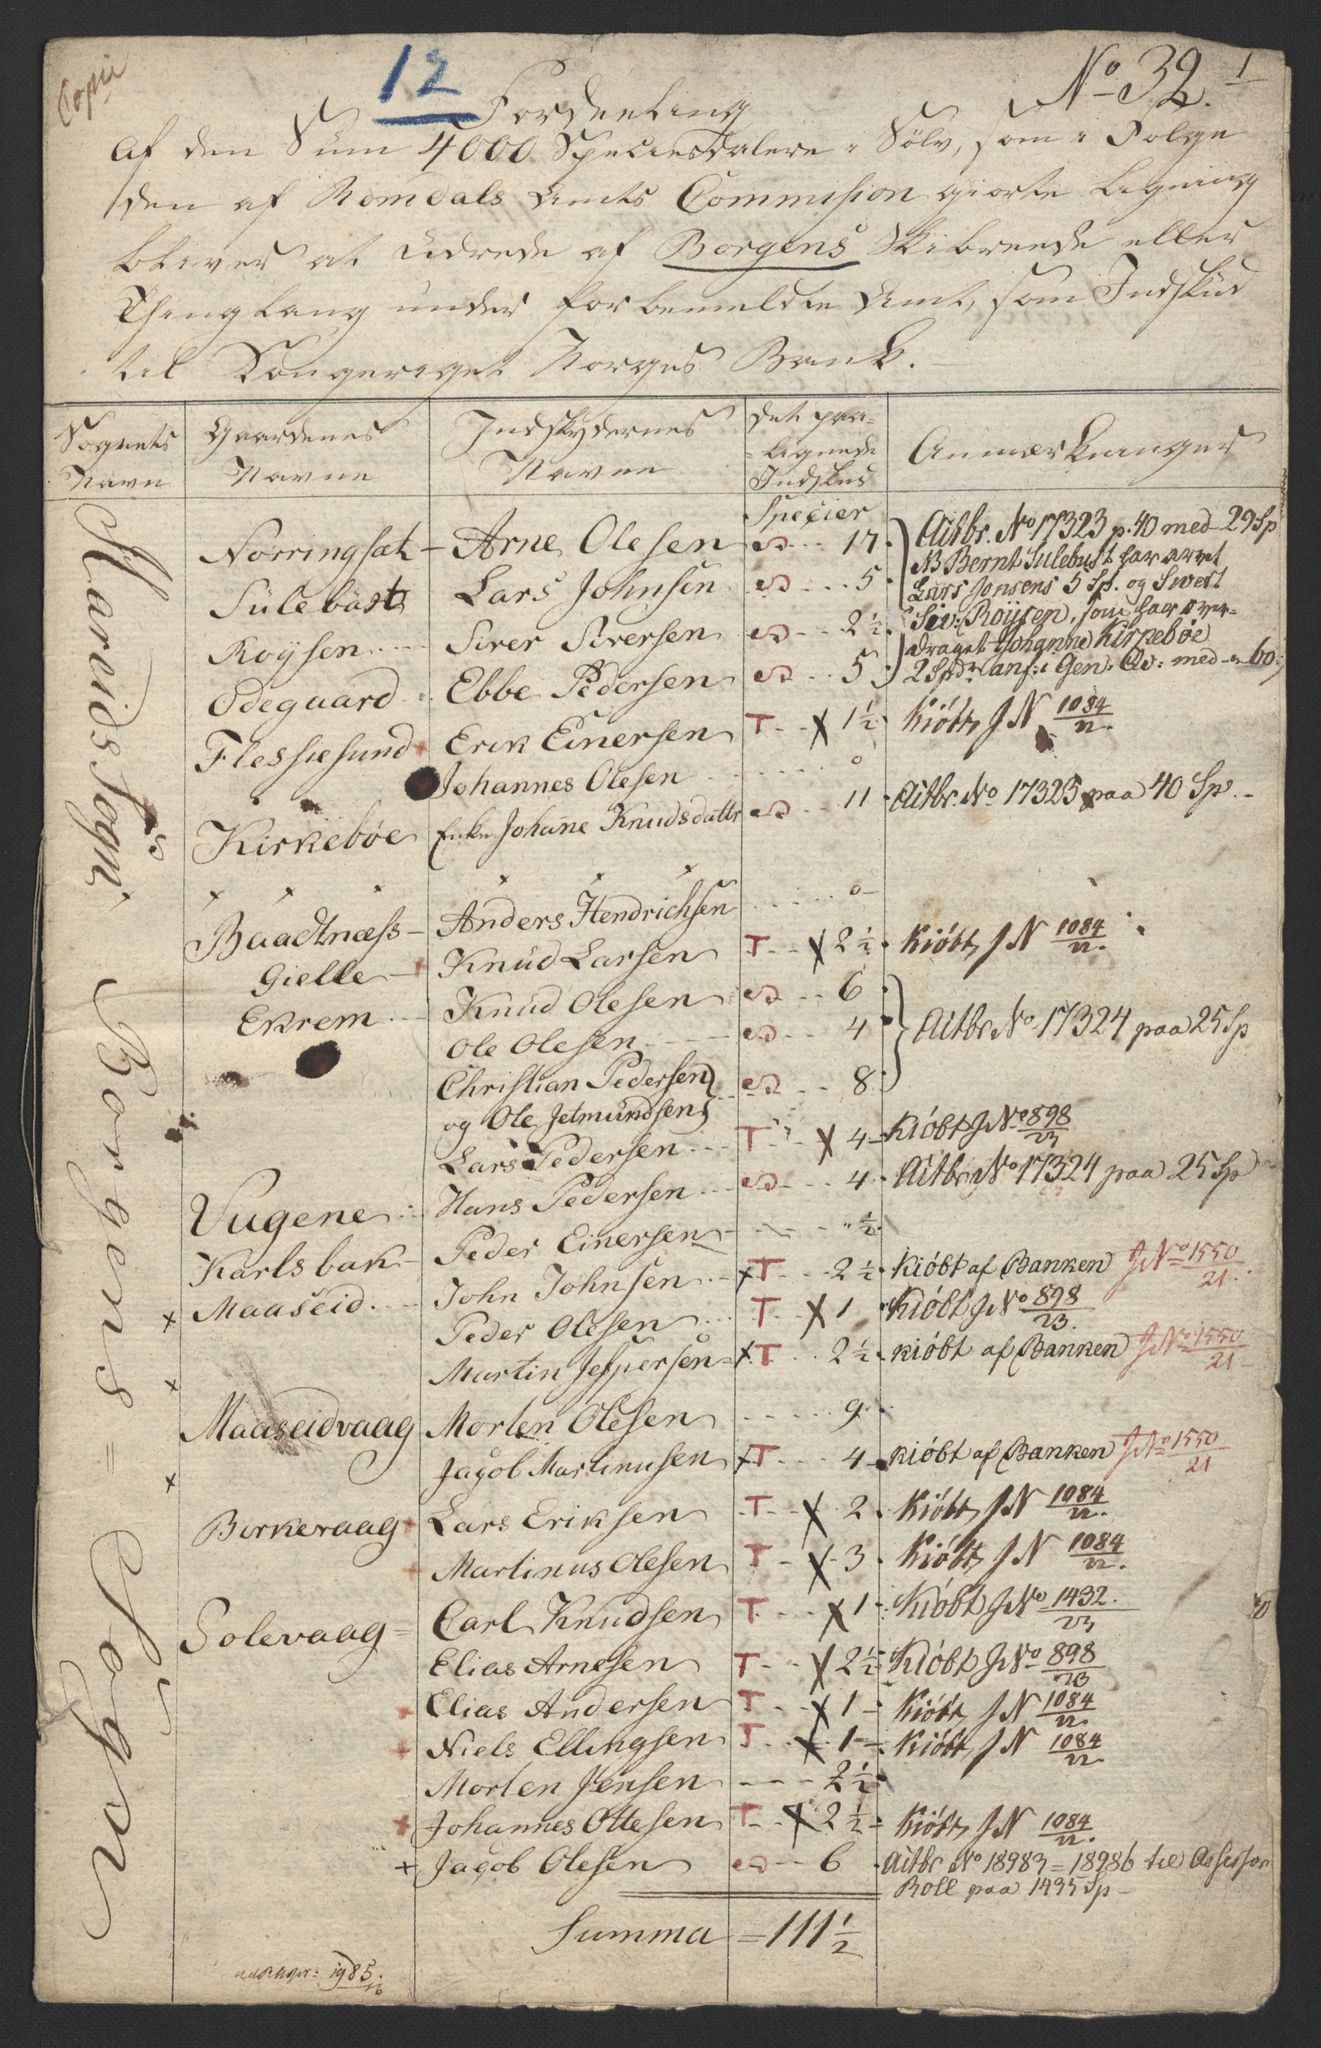 Copie
12
No 32. 1
Fordeeling
af den Sum 4000 Speciesdalere i Sølv, som i Følge
den af Romdals Amts Commission giorte Ligning
bliver at udrede af Borgens Skibreede eller
Thinglaug under forbemeldte Amt, som Indskud
til Kongeriget Norges Bank.
Sognets Navn | Gaardenes Navne | Indskydernes Navne | Det paalignede Indskud Specier | Anmærkninger
Hareids Sogn, Borgens Sogn
Norringsæt Arne Olesen 17 Actbr. No 17323 p. 40 med 29 Sp
Sulebust Lars Johnsen 5 NB Bernt Sulebust har arvet
Lars Jonsens 5 Sp. og Sivert
Roysen Siver Siversen 2 1/2 Siv: Roysen, som har over-
draget Johanne Kirkebøe
Odegaard Ebbe Pedersen 5 2 Spdr anf: i Gen: Qv: med 60
Flessiesund Erik Einersen T X 1 1/2 Kiøbt J N 1084/22.
Johannes Olesen 0
Kirkebøe Enke Johane Knudsdattr 11 Actbr No 17323 paa 40 Sp.
Baadtnæss Anders Hendrichsen 0
Gielle Knud Larsen T X 2 1/2 Kiøbt J N 1084/22.
Ekrem Knud Olesen 6
Ole Olesen 4 Actbr No 17324 paa 25 Sp
Christian Pedersen 8
og Ole Jetmundsen
Lars Pedersen T X 4 Kiøbt J No 898/23
Vugene Hans Pedersen 4 Actbr No 17324 paa 25 Sp
Karlsbak Peder Einersen 1/2
Maaseid John Johnsen x T 2 1/2 Kiøbt af Banken J No 1550/21.
Peder Olesen T X 1 Kiøbt J No 898/23.
Martin Jespersen x T 2 1/2 kiøbt af Banken J No 1550/21
Maaseidvaag Morten Olesen 9
Jacob Martinusen x T 4 kiøbt af Banken J No 1550/21
Birkevaag Lars Eriksen T X 2 Kiøbt J N 1084/22.
Martinus Olesen T X 3 Kiøbt J N 1084/22.
Solevaag Carl Knudsen T X 1 Kiøbt J No 1432/23
Elias Arnesen T X 2 1/2 Kiøbt J No 898/23
Elias Andersen T X 1 Kiøbt J N 1084/22.
Niels Ellingsen T X 1 Kiøbt J N 1084/22
Morten Jensen 2 1/2
Johannes Ottesen T X 2 1/2 Kiøbt J N 1084/22.
Jacob Olesen 6 Actbr No 18983 = 18986 til Assessor
Roll paa 1495 Sp
Summa = 111 1/2
1985.